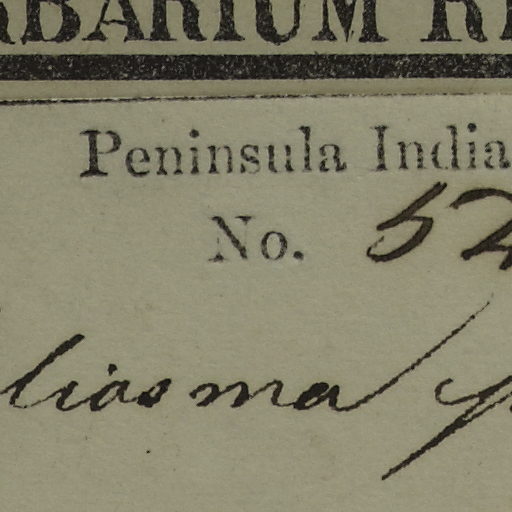 RBARIUM R
Peninsula India
No. 52
liosma